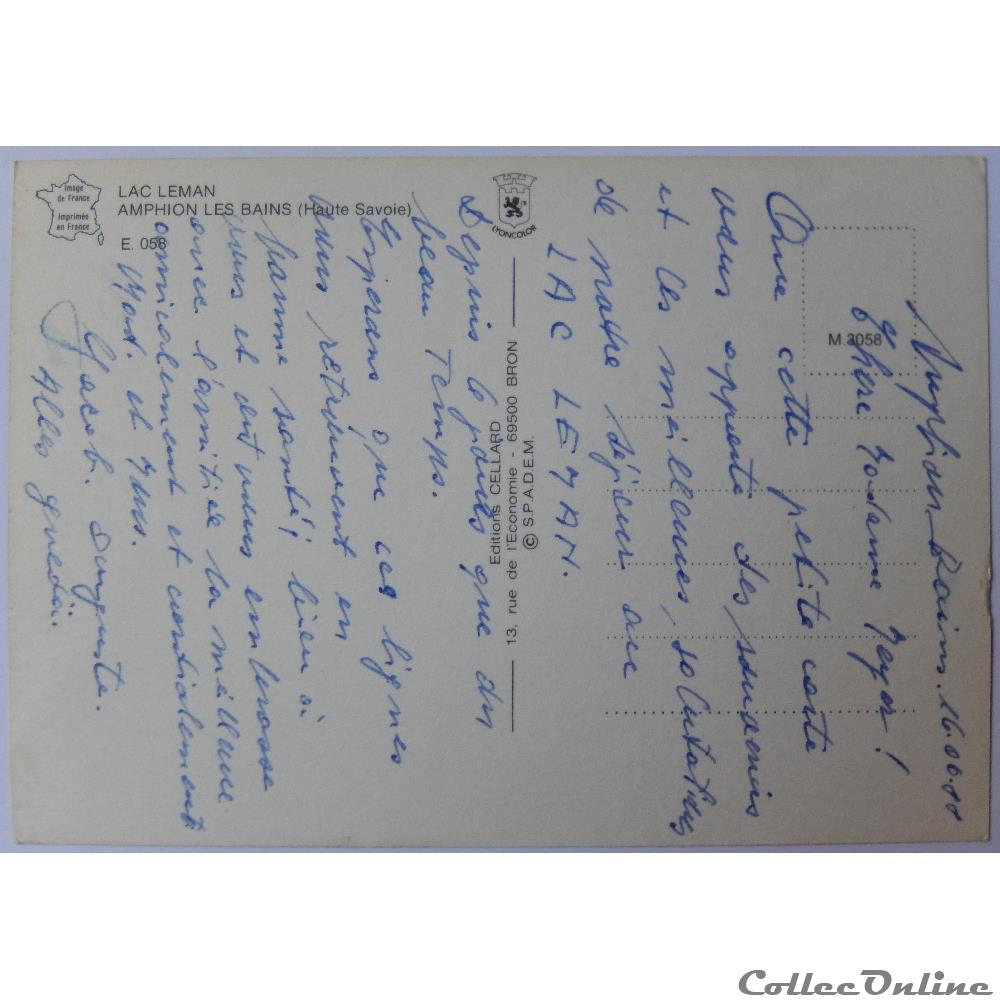 Image
de France
Imprimée
en France
LAC LEMAN
AMPHION LES BAINS (Haute Savoie)
E. 058
LYONCOLOR
Editions CELLARD
13, rue de l'Economie - 69500 BRON
© S.P.A.D.E.M.
M.3058
Amphion-Bains.
Chère Madame
Que cette petite carte
vous apporte des souvenirs
et les meilleures, salutations
de notre séjour au
LAC LEMAN.
Depuis le jours que du
beau Temps.
Espérons que ces lignes
vous retrouvent en
bonne santé, bien à
vous et
avec l'amitié la meilleure
amicalement et cordialement
et
Jacob. Auguste.
Alles
CollecOnline